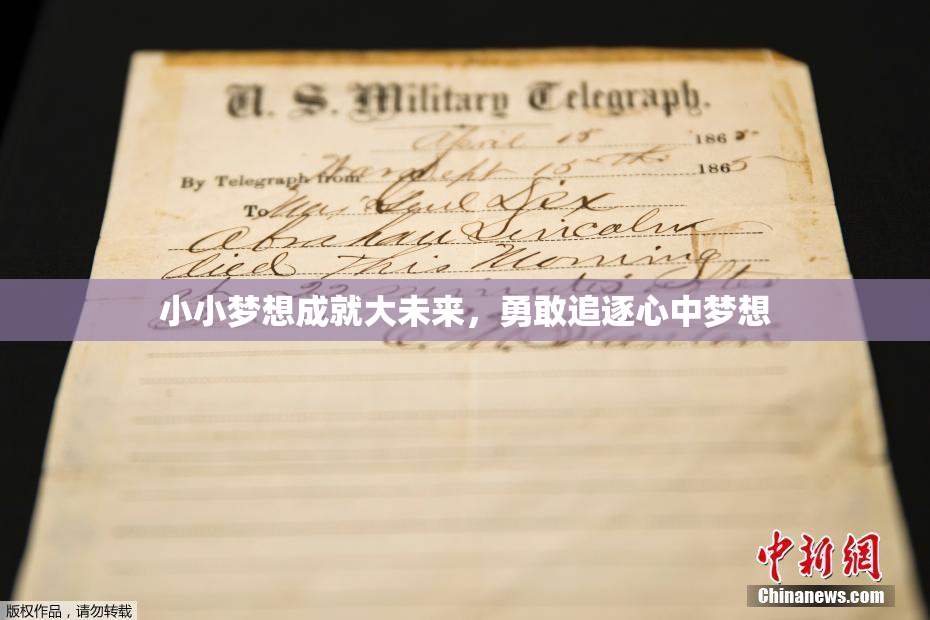 U. S. Military Telegraph.
April 15 1865
By Telegraph from War Dept 15th 1865
To Maj Genl Dix
Abraham Lincoln
died This Morning
22 minutes after
小小梦想成就大未来，勇敢追逐心中梦想
E. M. Stanton
中新网
Chinanews.com
版权作品，请勿转载